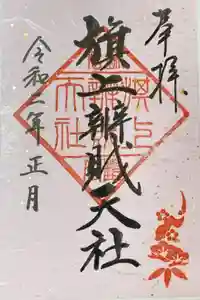 奉拝
旗上辨財天社
令和二年正月